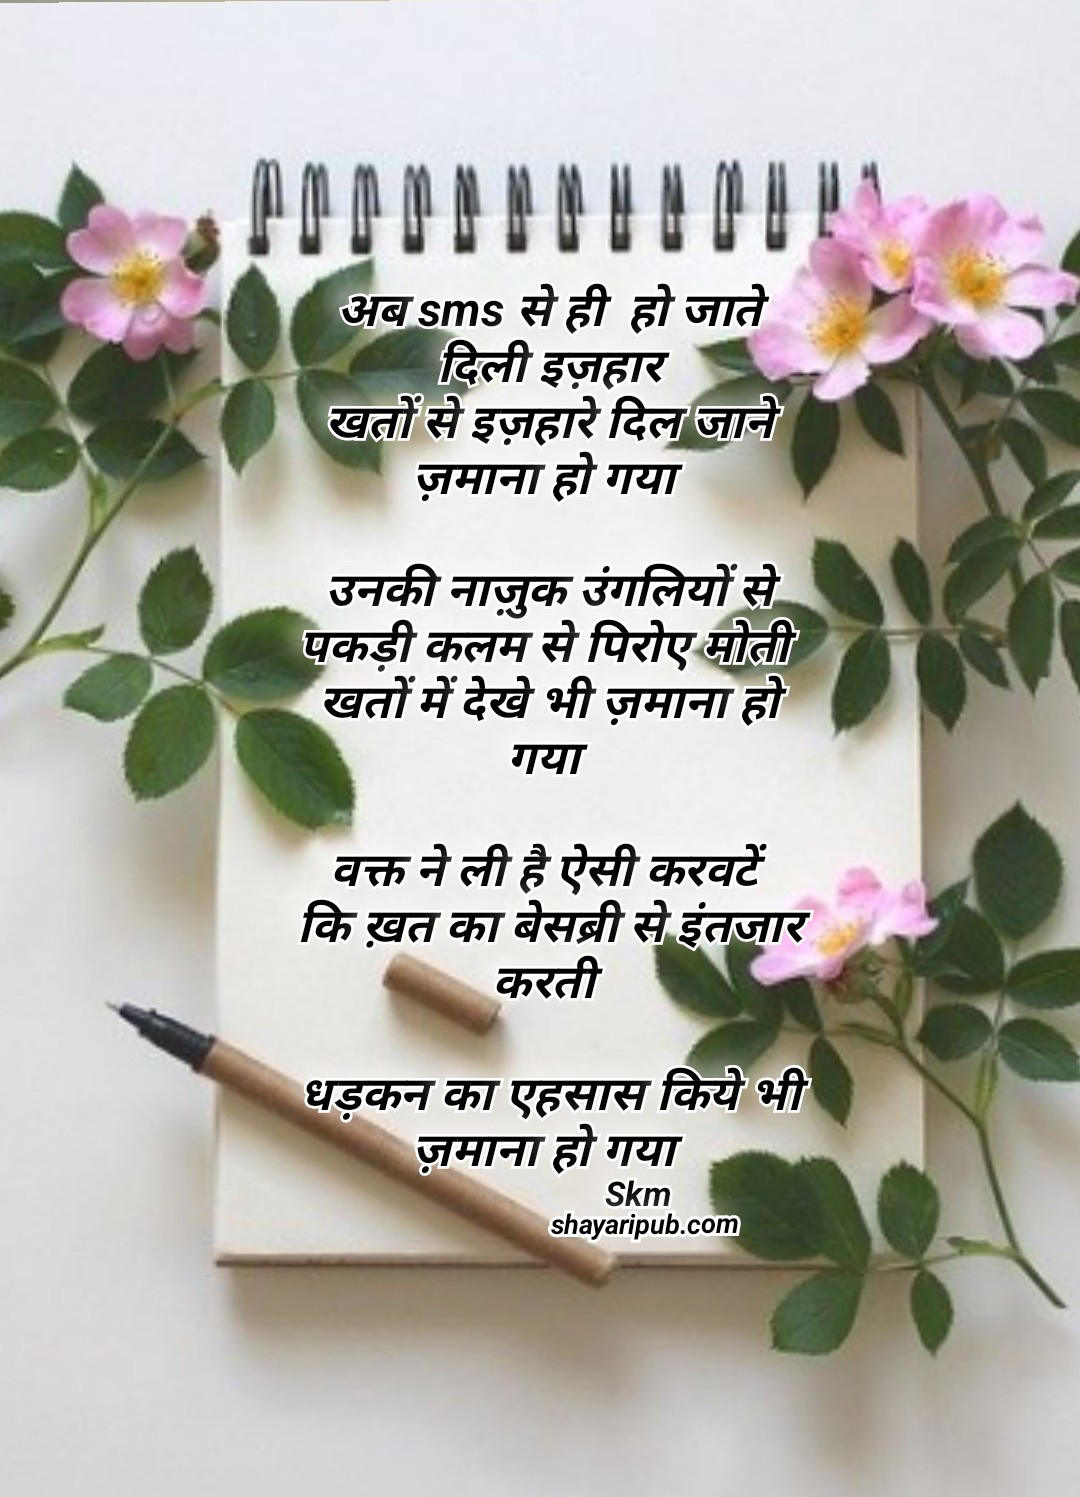 अब sms से ही हो जाते
दिली इज़हार
खतों से इज़हारे दिल जाने
ज़माना हो गया
उनकी नाज़ुक उंगलियों से
पकड़ी कलम से पिरोए मोती
खतों में देखे भी ज़माना हो
गया
वक्त ने ली है ऐसी करवटें
कि ख़त का बेसब्री से इंतजार
करती
धड़कन का एहसास किये भी
ज़माना हो गया
Skm
shayaripub.com